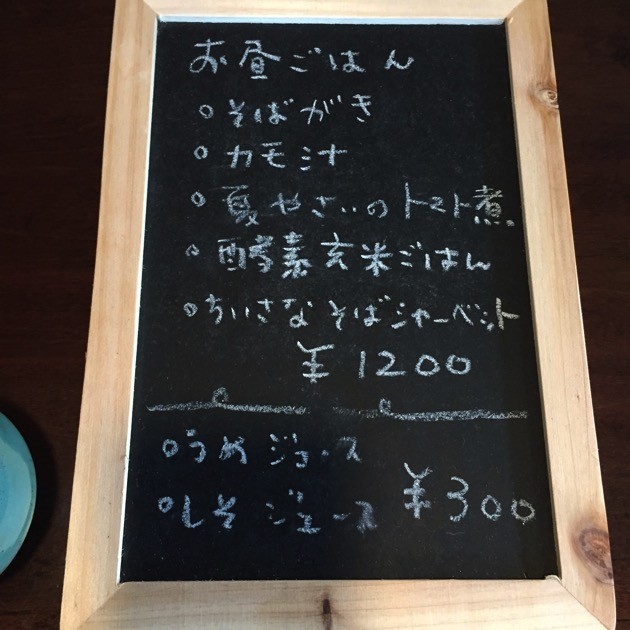 お昼ごはん
○そばがき
○カモ汁
○夏やさいのトマト煮
○酵素玄米ごはん
○ちいさなそばシャーベット
¥1200
○うめジュース
○しそジュース ¥300